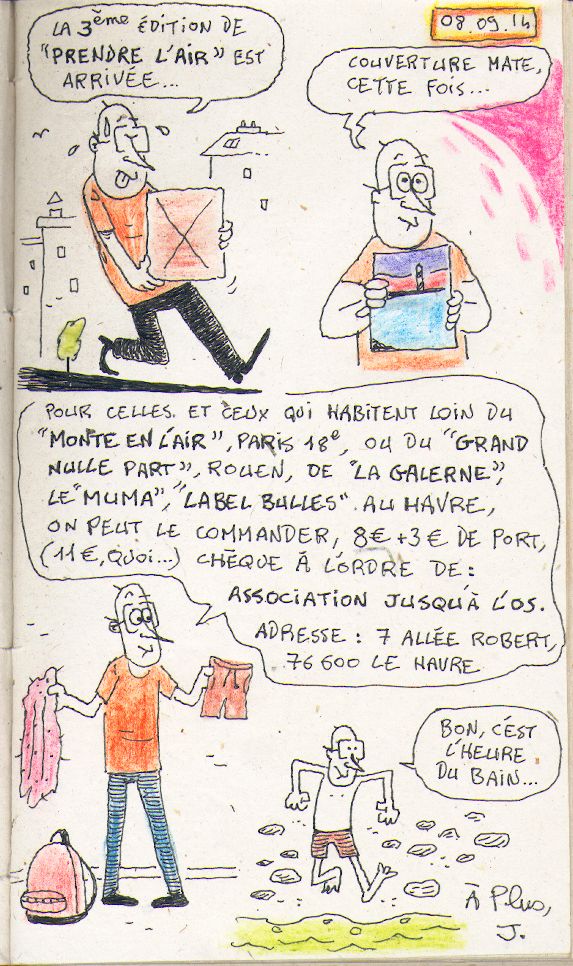 08.09.14
LA 3ème ÉDITION DE
"PRENDRE L'AIR" EST
ARRIVÉE...
COUVERTURE MATE,
CETTE FOIS...
POUR CELLES ET CEUX QUI HABITENT LOIN DU
"MONTE EN L'AIR", PARIS 18e, OU DU "GRAND
NULLE PART", ROUEN, DE "LA GALERNE",
LE "MUMA", "LABEL BULLES" AU HAVRE,
ON PEUT LE COMMANDER, 8€+3€ DE PORT,
(11€, QUOI...) CHÈQUE À L'ORDRE DE:
ASSOCIATION JUSQU'À L'OS.
ADRESSE : 7 ALLÉE ROBERT,
76600 LE HAVRE
BON, C'EST
L'HEURE
DU BAIN...
À Plus,
J.